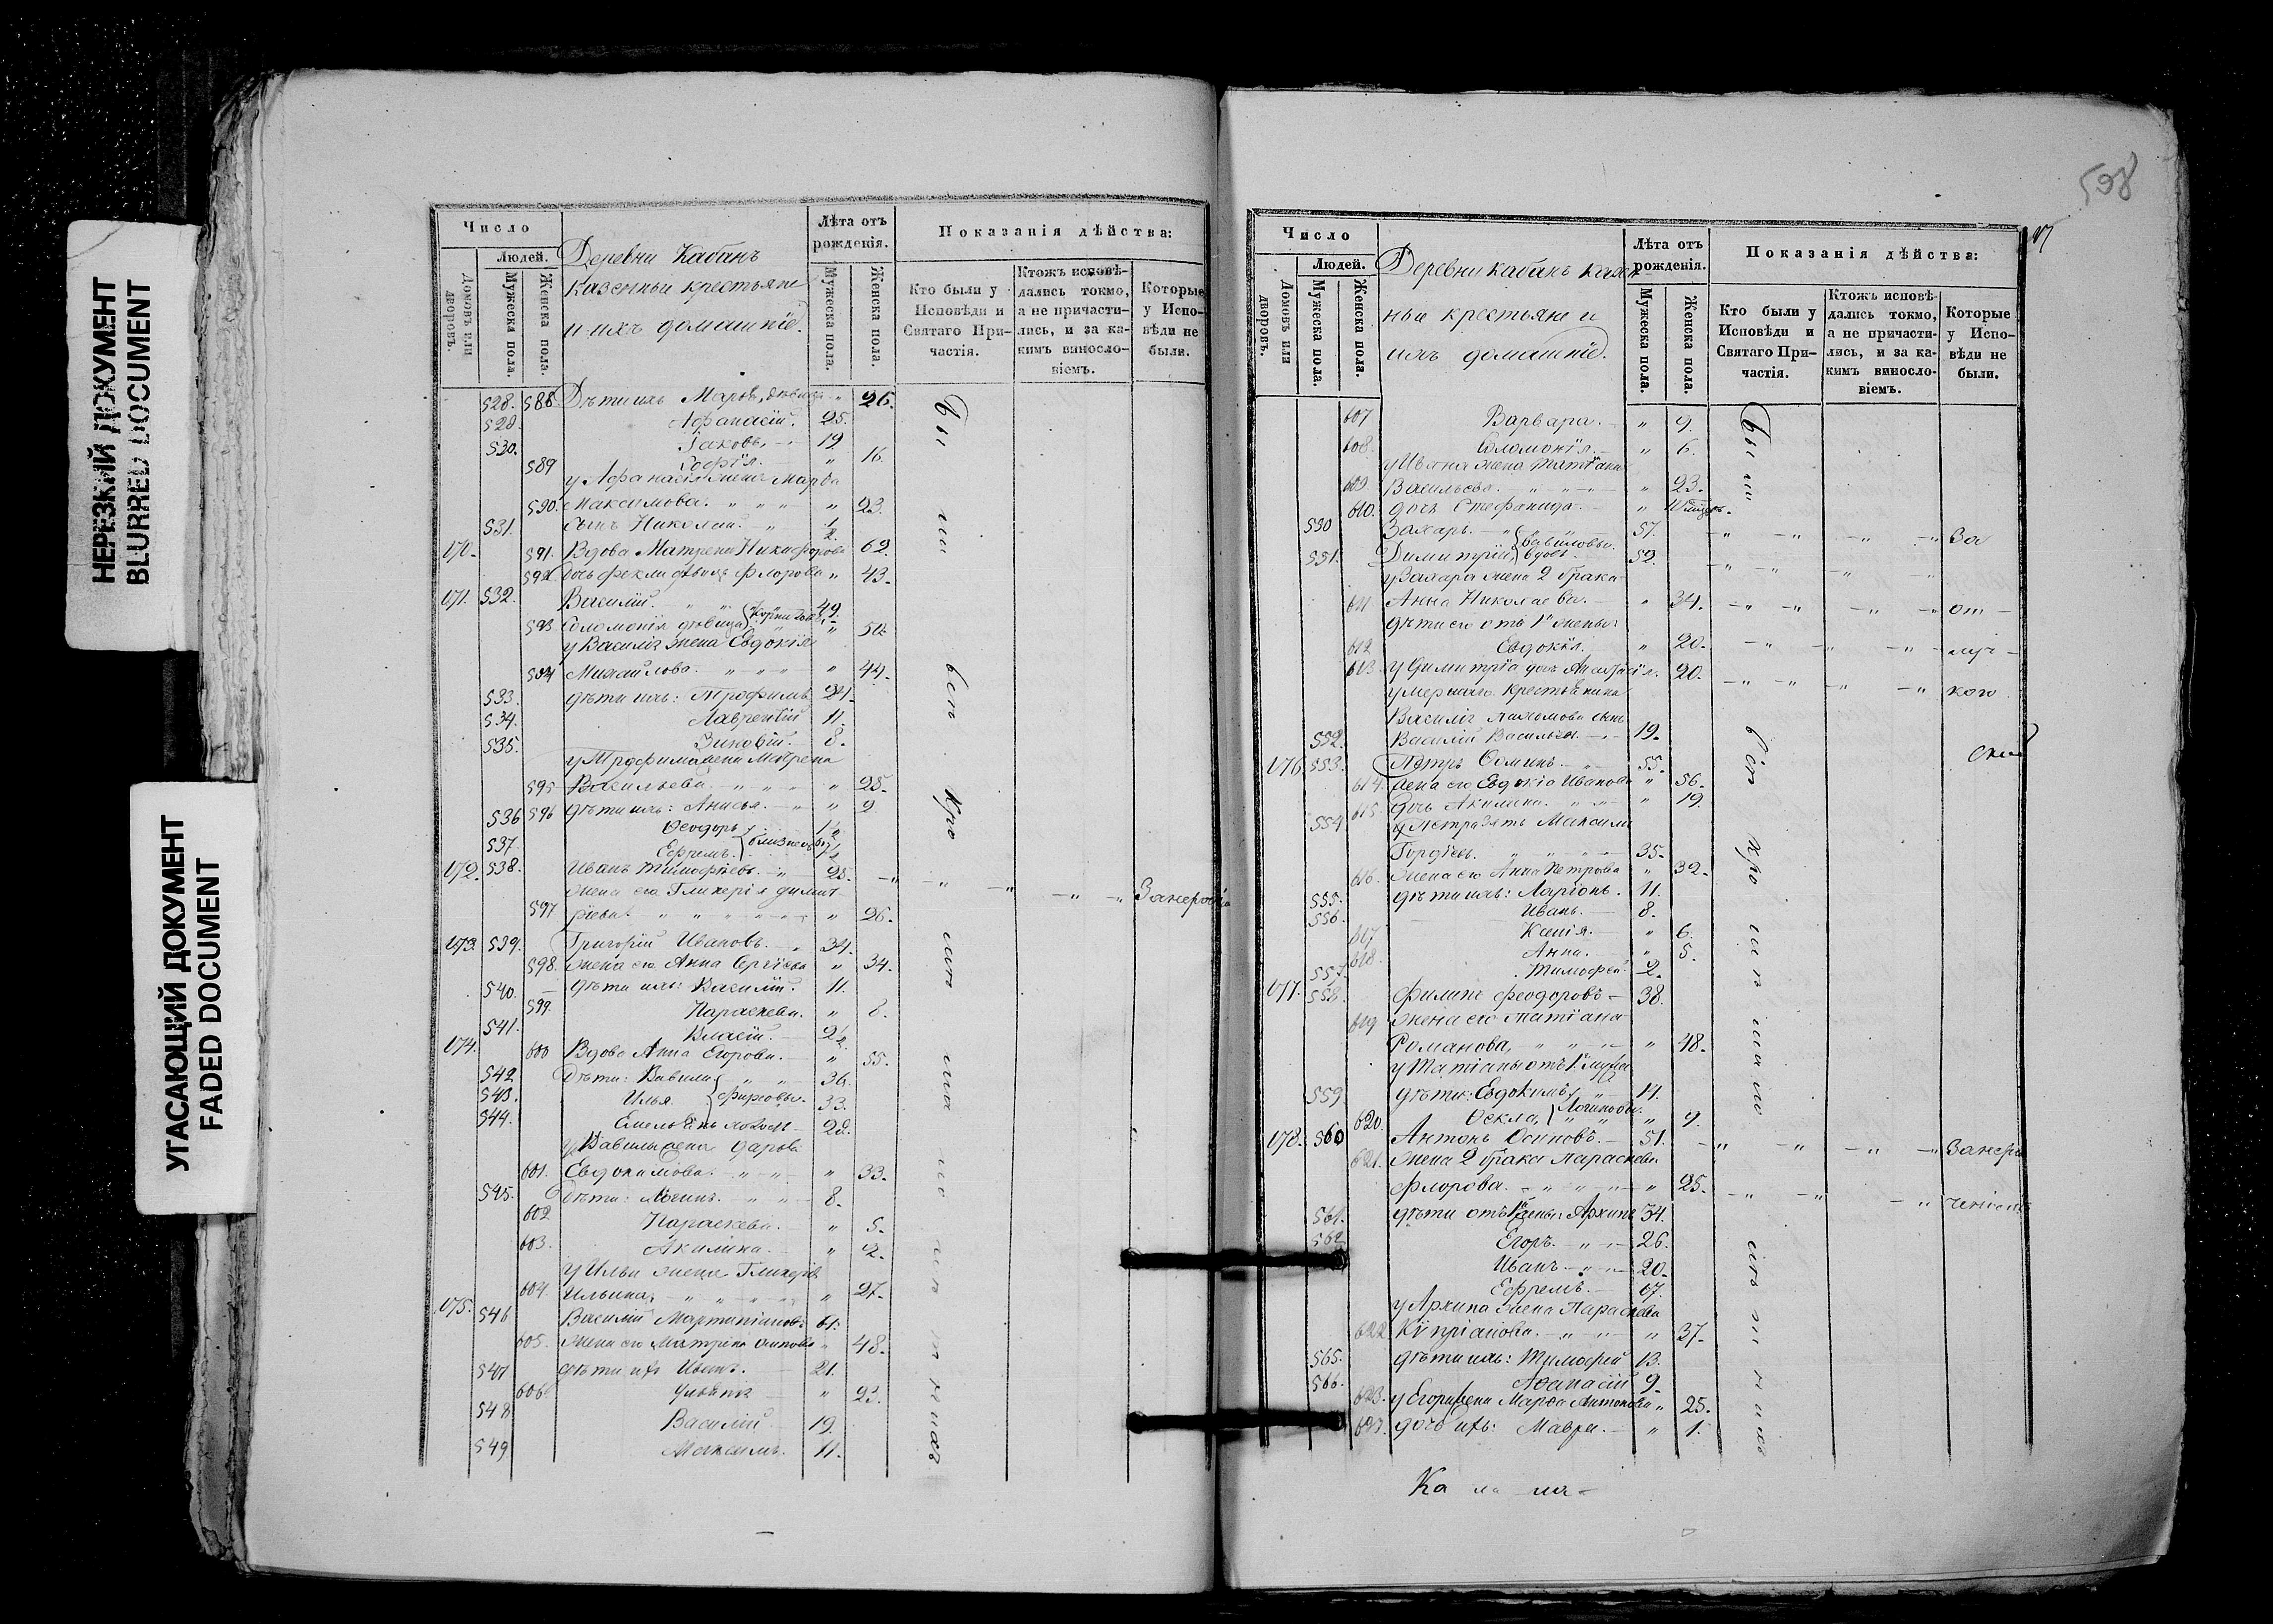 НЕРЕЗКИЙ ДОКУМЕНТ
BLURRED DOCUMENT
УГАСАЮЩИЙ ДОКУМЕНТ
FADED DOCUMENT
Число
Людей.
Домовъ или дворовъ.
Мужеска пола.
Женска пола.
Деревни Кабанъ
казенныи крестьяне
и ихъ домашніе.
Лѣта отъ рожденія.
Мужеска пола.
Женска пола.
Показанія дѣйства:
Кто были у Исповѣди и Святаго Причастія.
Ктожъ исповѣдались токмо, а не причастились, и за какимъ винословіемъ.
Которые у Исповѣди не были.
528. 588 Дѣти ихъ " 26.
529. Афанасій. 25.
530. Іаковъ. 19
589 Софія. " 16
у Афанасія жена Марѳа
590. Максимова. " " " " 23.
531. сынъ Николай. "
170. 591. Вдова Матрена Никифорова 62.
592. дочь Фекла Флорова " 43.
171. 532. Василій. " " 49.
593 Соломонія дѣвица " 50.
у Василія жена Евдокія
594 Михайлова. " " " " 44.
533. дѣти ихъ: Трофимъ 21.
534. Лаврентій 11.
535. Зиновій. 8.
у Трофима жена Матрена
595 Васильева. " " " " 25.
536 596 дѣти ихъ: Анисья. " " 2
Ѳеодоръ
537. Ефремъ. близнецы
172. 538. Иванъ Тимофѣевъ. " 25. " " " " "
жена его Гликерія Димит-
597 ріева. " " " " " " 26.
173. 539. Григорій Ивановъ. " 34.
598. жена его Анна Сергіева " 34.
540. дѣти ихъ: Василій. 11.
599. Параскева. " 8.
541. Власій.
174. 600 Вдова Анна Егорова. " 55.
542 Дѣти: Вавила " " 36.
543. Илья. Фирсовы. 33.
544. Емельянъ 28.
у Вавилы жена Дарья
601. Евдокимова. " " " " 33.
545. Дѣти: Логинъ. " " 8.
602 Параскева. " 5.
603. Акилина. " 2.
у Ильи жена Гликерія
604. Ильина. " " " " " 27.
175. 546 Василій 61.
605. жена его Матрена Осипова " 48.
547 дѣти ихъ Иванъ. 21.
606. Ульяна " 23.
548 Василій 19.
549 Максимъ. 11.
598
Число
Людей.
Домовъ или дворовъ.
Мужеска пола.
Женска пола.
Деревни Кабанъ казен
ныи крестьяне и
ихъ домашніе.
Лѣта отъ рожденія.
Мужеска пола.
Женска пола.
Показанія дѣйства:
Кто были у Исповѣди и Святаго Причастія.
Ктожъ исповѣдались токмо, а не причастились, и за какимъ винословіемъ.
Которые у Исповѣди не были.
607 Варвара. " 9.
608. Соломонія. " 6.
у Ивана жена Татіана
609. Васильева. " " " " 23.
610. дочь Стефанида. "
550 Захаръ. " 57. " " " " За
551. Димитрій вдовъ. 52. " " " "
у Захара жена 2 брака
611 Анна Николаева. " 34. " " " " от-
дѣти его отъ 1й жены
612 Евдокія. " 20. " " " " луч-
613. у Димитрія дочь Анастасія. 20. " " " " кою
умершаго крестьянина
Василія Пахомова сынъ
552. Василій Васильевъ. " 19.
176. 553. Петръ Ѳоминъ. " 55.
614. жена его Евдокія Иванова " 56.
615. дочь Акилина. " " " 19.
554 у Петра зять Максимъ
Гордіевъ. " " " 35.
616. жена его Анна Петрова " 32.
555. дѣти ихъ: Ларіонъ. 11.
556. Иванъ. 8.
617 Ксенія. " 6.
618. Анна. " 5.
557. Тимофей. 2.
177. 558. Филипъ Феодоровъ 38.
619 жена его Татіана
Романова, " " " " 48.
у Татіаны отъ 1 мужа
559. дѣти: Евдокимъ " 14.
620. Ѳекла, Логиновы. " " 9.
178. 560 Антонъ Осиповъ. 51. " " " "
621. жена 2 брака Параскева
Флорова. " " " " " 25. " " "
561. дѣти отъ 1й жены Архипъ 34.
562. Егоръ. " " 26.
Иванъ. " " 20.
Ефремъ. 17.
у Архипа жена Параскева
622 Кипріанова. " " " 37.
565. дѣти ихъ: Тимофей 13.
566. Афанасій 9.
623. у Егора жена Марѳа Антонова " 25.
дочь ихъ: Мавра. " 1.